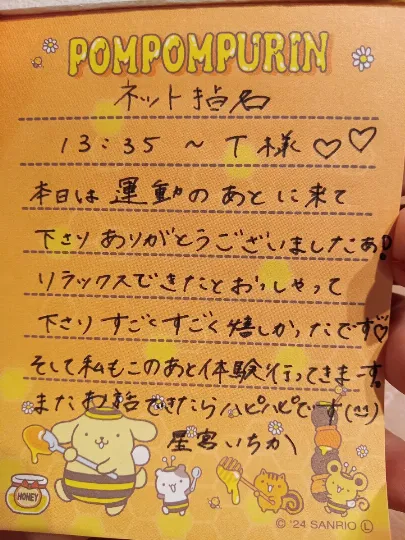 POMPOMPURIN
ネット指名
13:35 ~ T様♡♡
本日は運動のあとに来て
下さりありがとうございましたあ!
リラックスできたとおっしゃって
下さりすごくすごく嬉しかったです♡
そして私もこのあと体験行ってきます!
またお話できたらハピハピです(^^)
星宮いちか
HONEY
© '24 SANRIO Ⓛ